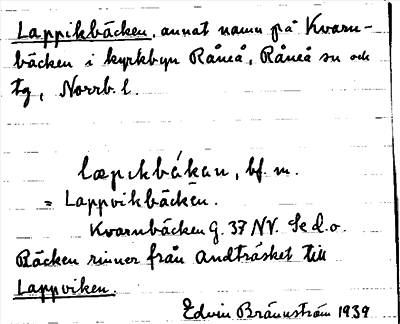 Lappikbäcken, annat namn på Kvarn-
bäcken i kyrkbyn Råneå, Råneå sn och
tg, Norrb. l.
læpikbákan, bf. m.
= Lappvikbäcken.
Kvarnbäcken G. 37 NV. Se d. o.
Bäcken rinner från Andträsket till
Lappviken.
Edvin Brännström 1939